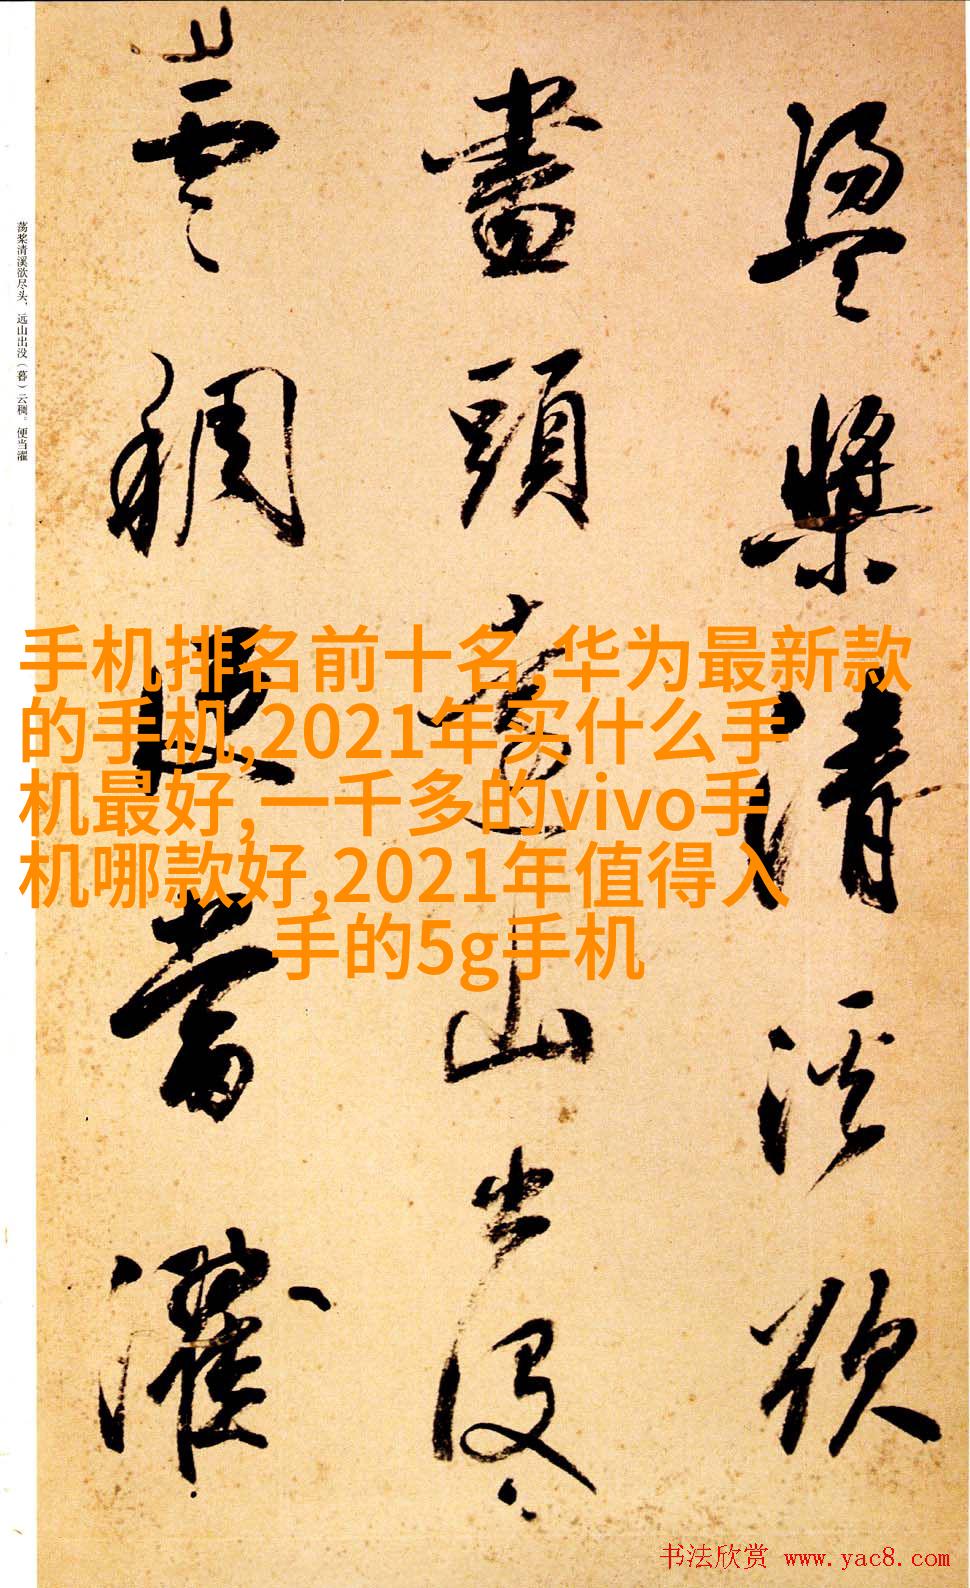 盪槳清溪欲
盡頭遠山出沒
雲稠便當濯
荡桨清溪欲尽头，远山出没（暮）云稠。便当濯
手机排名前十名,华为最新款
的手机,2021年买什么手
机最好, 一千多的vivo手
机哪款好,2021年值得入
手的5g手机
书法欣赏 www.yac8.com